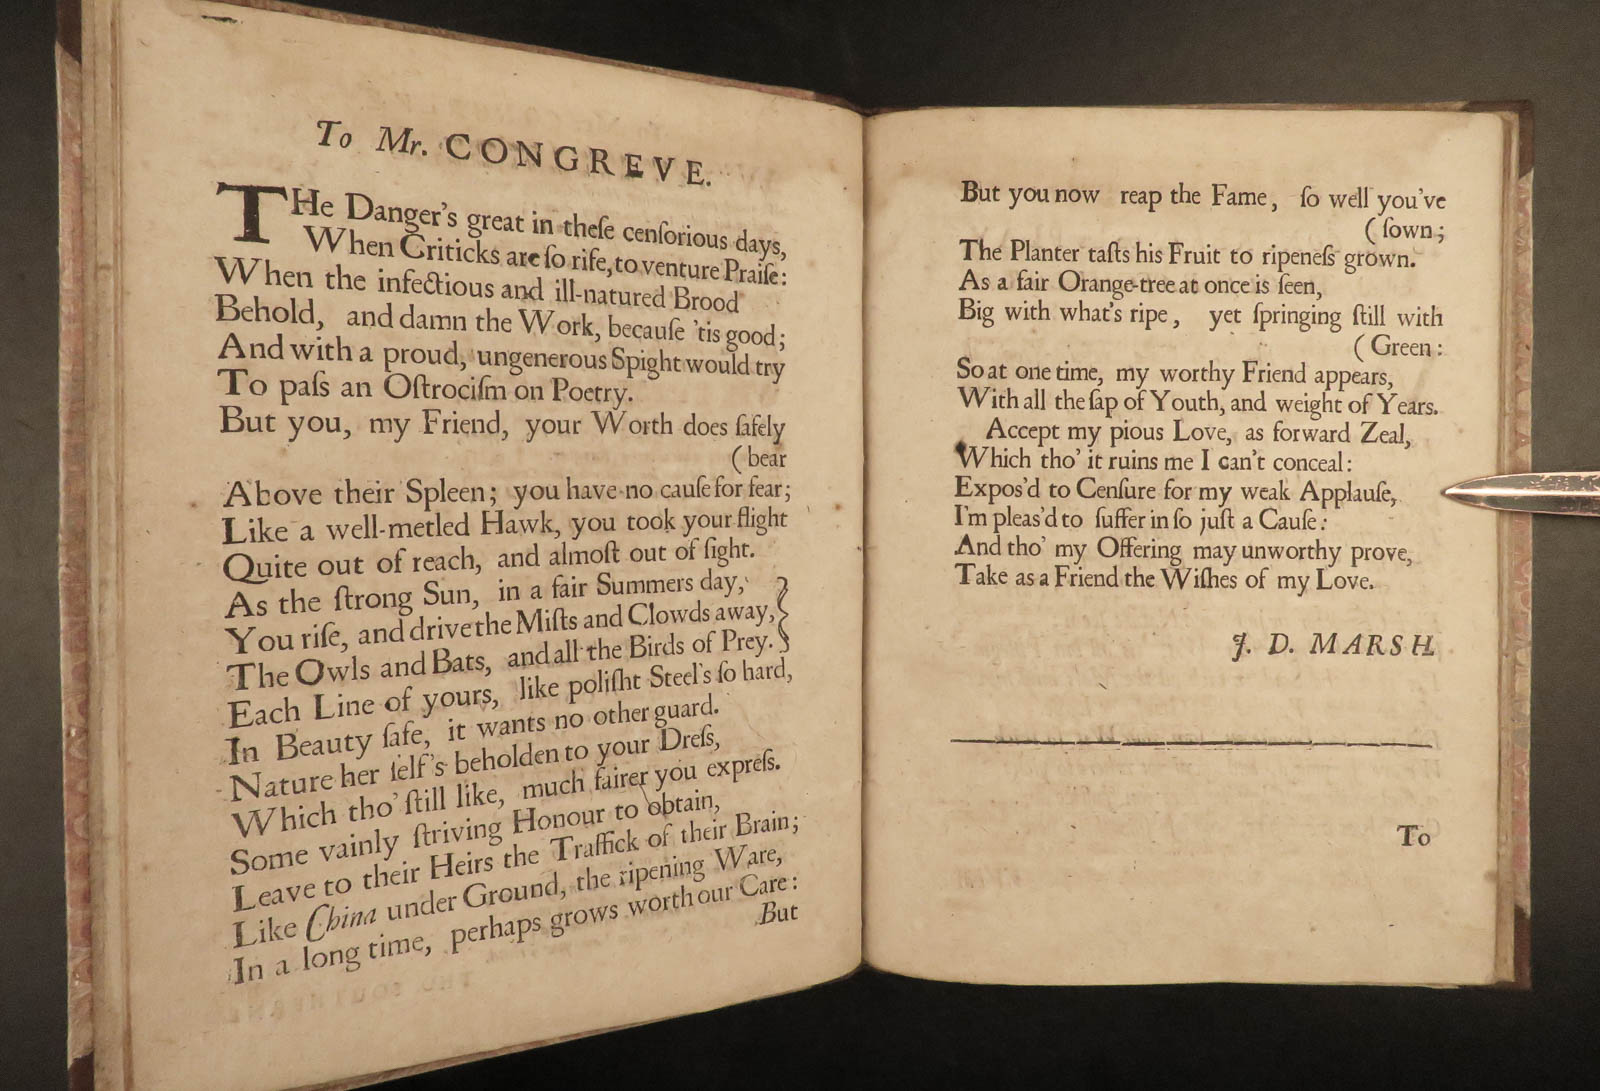 To Mr. CONGREVE.
THe Danger's great in theſe cenſorious days,
When Criticks are ſo rife, to venture Praiſe:
When the infectious and ill-natured Brood
Behold, and damn the Work, becauſe 'tis good;
And with a proud, ungenerous Spight would try
To paſs an Oſtrociſm on Poetry.
But you, my Friend, your Worth does ſafely
(bear
Above their Spleen; you have no cauſe for fear;
Like a well-metled Hawk, you took your flight
Quite out of reach, and almoſt out of ſight.
As the ſtrong Sun, in a fair Summers day,
You riſe, and drive the Miſts and Clowds away,
The Owls and Bats, and all the Birds of Prey.
Each Line of yours, like poliſht Steel's ſo hard,
In Beauty ſafe, it wants no other guard.
Nature her ſelf's beholden to your Dreſs,
Which tho' ſtill like, much fairer you expreſs.
Some vainly ſtriving Honour to obtain,
Leave to their Heirs the Traffick of their Brain;
Like China under Ground, the ripening Ware,
In a long time, perhaps grows worth our Care:
But
But you now reap the Fame, ſo well you've
(ſown;
The Planter taſts his Fruit to ripeneſs grown.
As a fair Orange-tree at once is ſeen,
Big with what's ripe, yet ſpringing ſtill with
(Green:
So at one time, my worthy Friend appears,
With all the ſap of Youth, and weight of Years.
Accept my pious Love, as forward Zeal,
Which tho' it ruins me I can't conceal:
Expos'd to Cenſure for my weak Applauſe,
I'm pleas'd to ſuffer in ſo juſt a Cauſe:
And tho' my Offering may unworthy prove,
Take as a Friend the Wiſhes of my Love.
J. D. MARSH
To